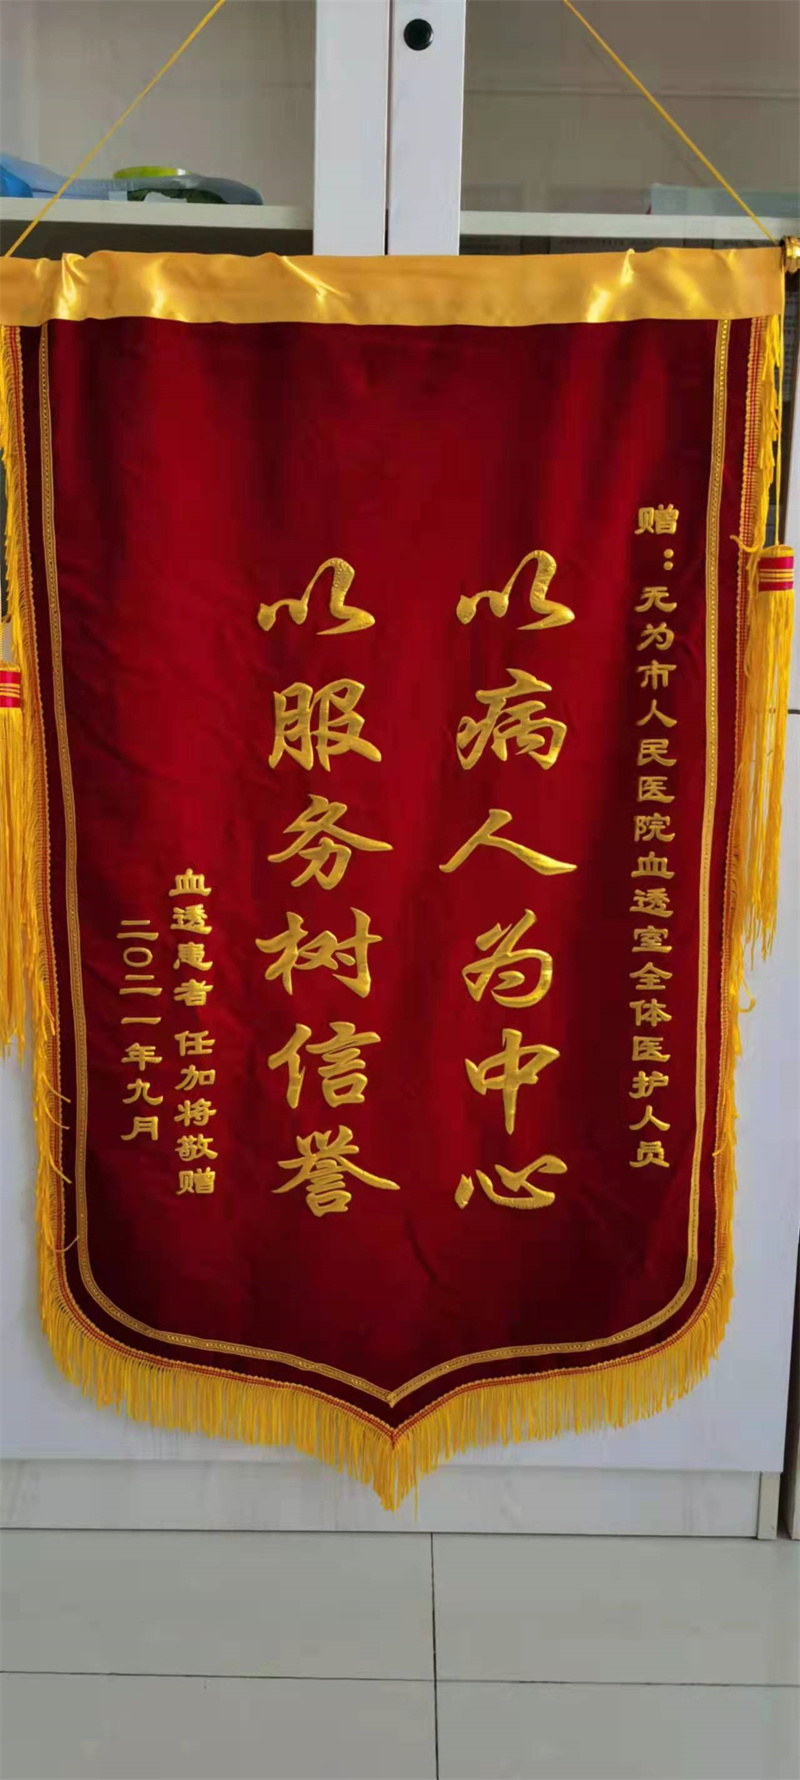 赠：无为市人民医院血透室全体医护人员
以病人为中心
以服务树信誉
血透患者 任加将敬赠
二〇二一年九月